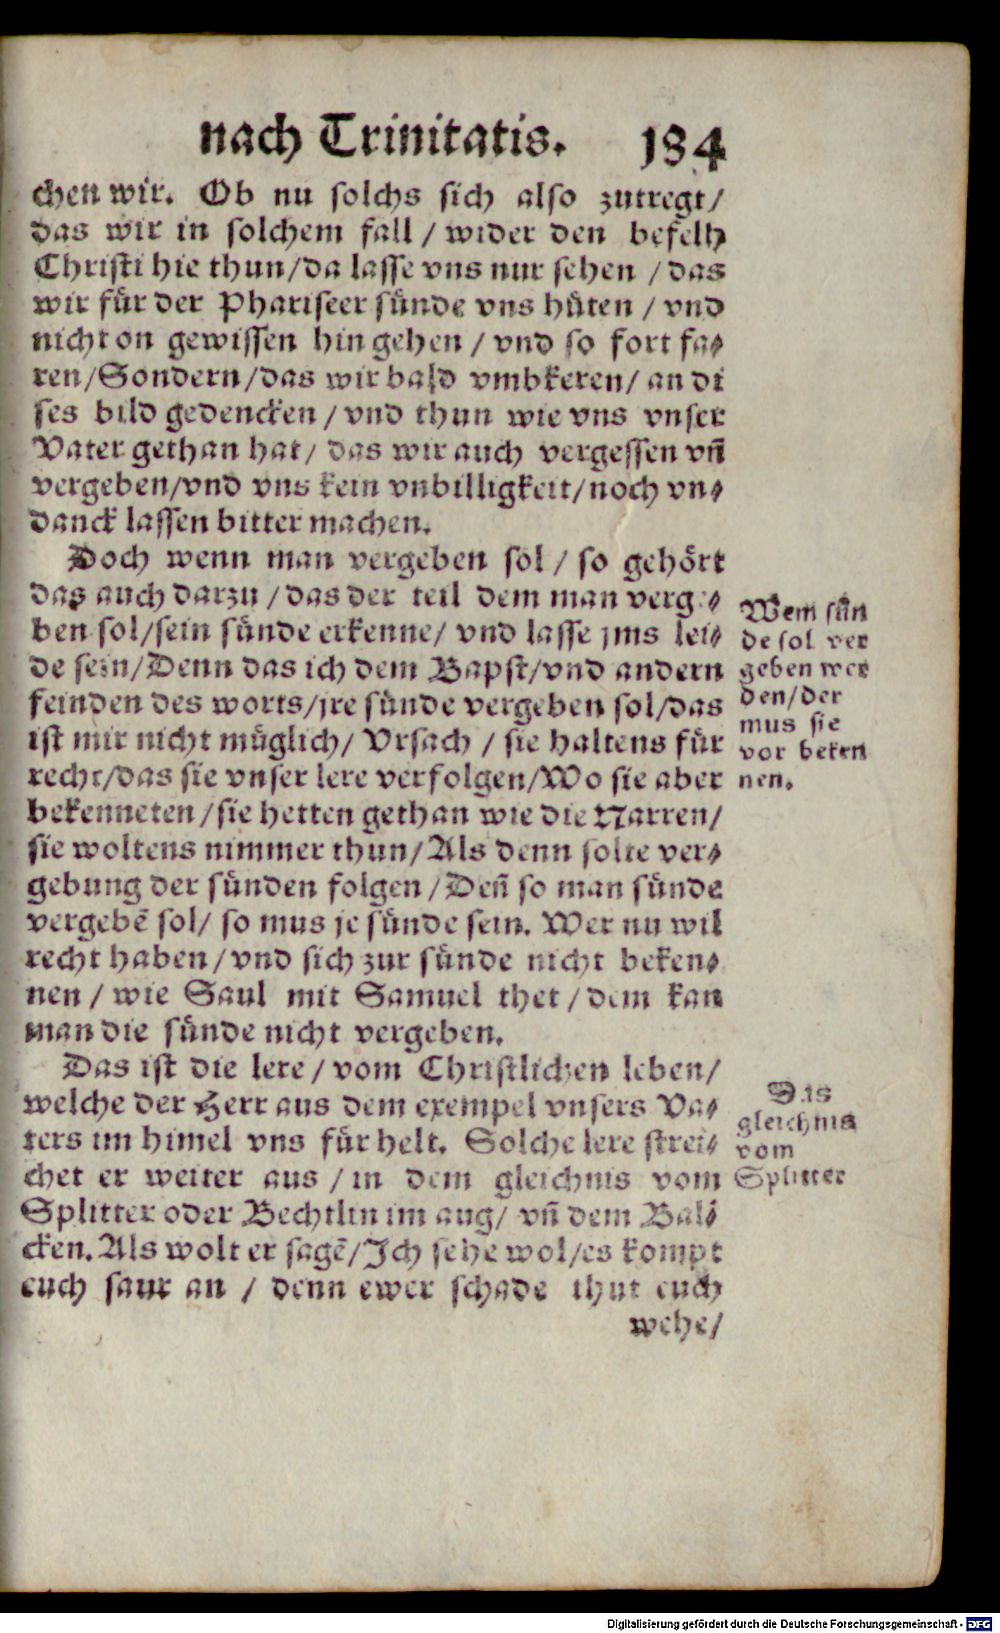 nach Trinitatis. 184
chen wir. Ob nu solchs sich also zutregt/
das wir in solchem fall / wider den befelh
Christi hie thun/da lasse vns nur sehen / das
wir für der Phariseer sünde vns hüten / vnd
nicht on gewissen hin gehen / vnd so fort fa⸗
ren/Sondern/das wir bald vmbkeren/ an di
ses bild gedencken / vnd thun wie vns vnser
Vater gethan hat/ das wir auch vergessen vn̄
vergeben/vnd vns kein vnbilligkeit/noch vn⸗
danck lassen bitter machen.
Doch wenn man vergeben sol / so gehört
das auch darzu / das der teil dem man verge⸗
ben sol/sein sünde erkenne/ vnd lasse jms lei⸗
de sein/Denn das ich dem Bapst/vnd andern
feinden des worts/jre sünde vergeben sol/das
ist mir nicht müglich/ Vrsach / sie haltens für
recht/das sie vnser lere verfolgen/Wo sie aber
bekenneten /sie hetten gethan wie die Narren/
sie woltens nimmer thun/Als denn solte ver⸗
gebung der sünden folgen /Den̄ so man sünde
vergebē sol/ so mus je sünde sein. Wer nu wil
recht haben/vnd sich zur sünde nicht beken⸗
nen / wie Saul mit Samuel thet /dem kan
man die sünde nicht vergeben.
Das ist die lere / vom Christlichen leben/
welche der Herr aus dem exempel vnsers Va⸗
ters im himel vns für helt. Solche lere strei⸗
chet er weiter aus / in dem gleichnis vom
Splitter oder Bechtlin im aug/ vn̄ dem Bal⸗
cken. Als wolt er sagē/Ich sehe wol/es kompt
euch saur an / denn ewer schade thut euch
wehe/
Wem sün
de sol ver
geben wer
den/der
mus sie
vor beken
nen.
Das
gleichnis
vom
Splitter
Digitalisierung gefördert durch die Deutsche Forschungsgemeinschaft - DFG